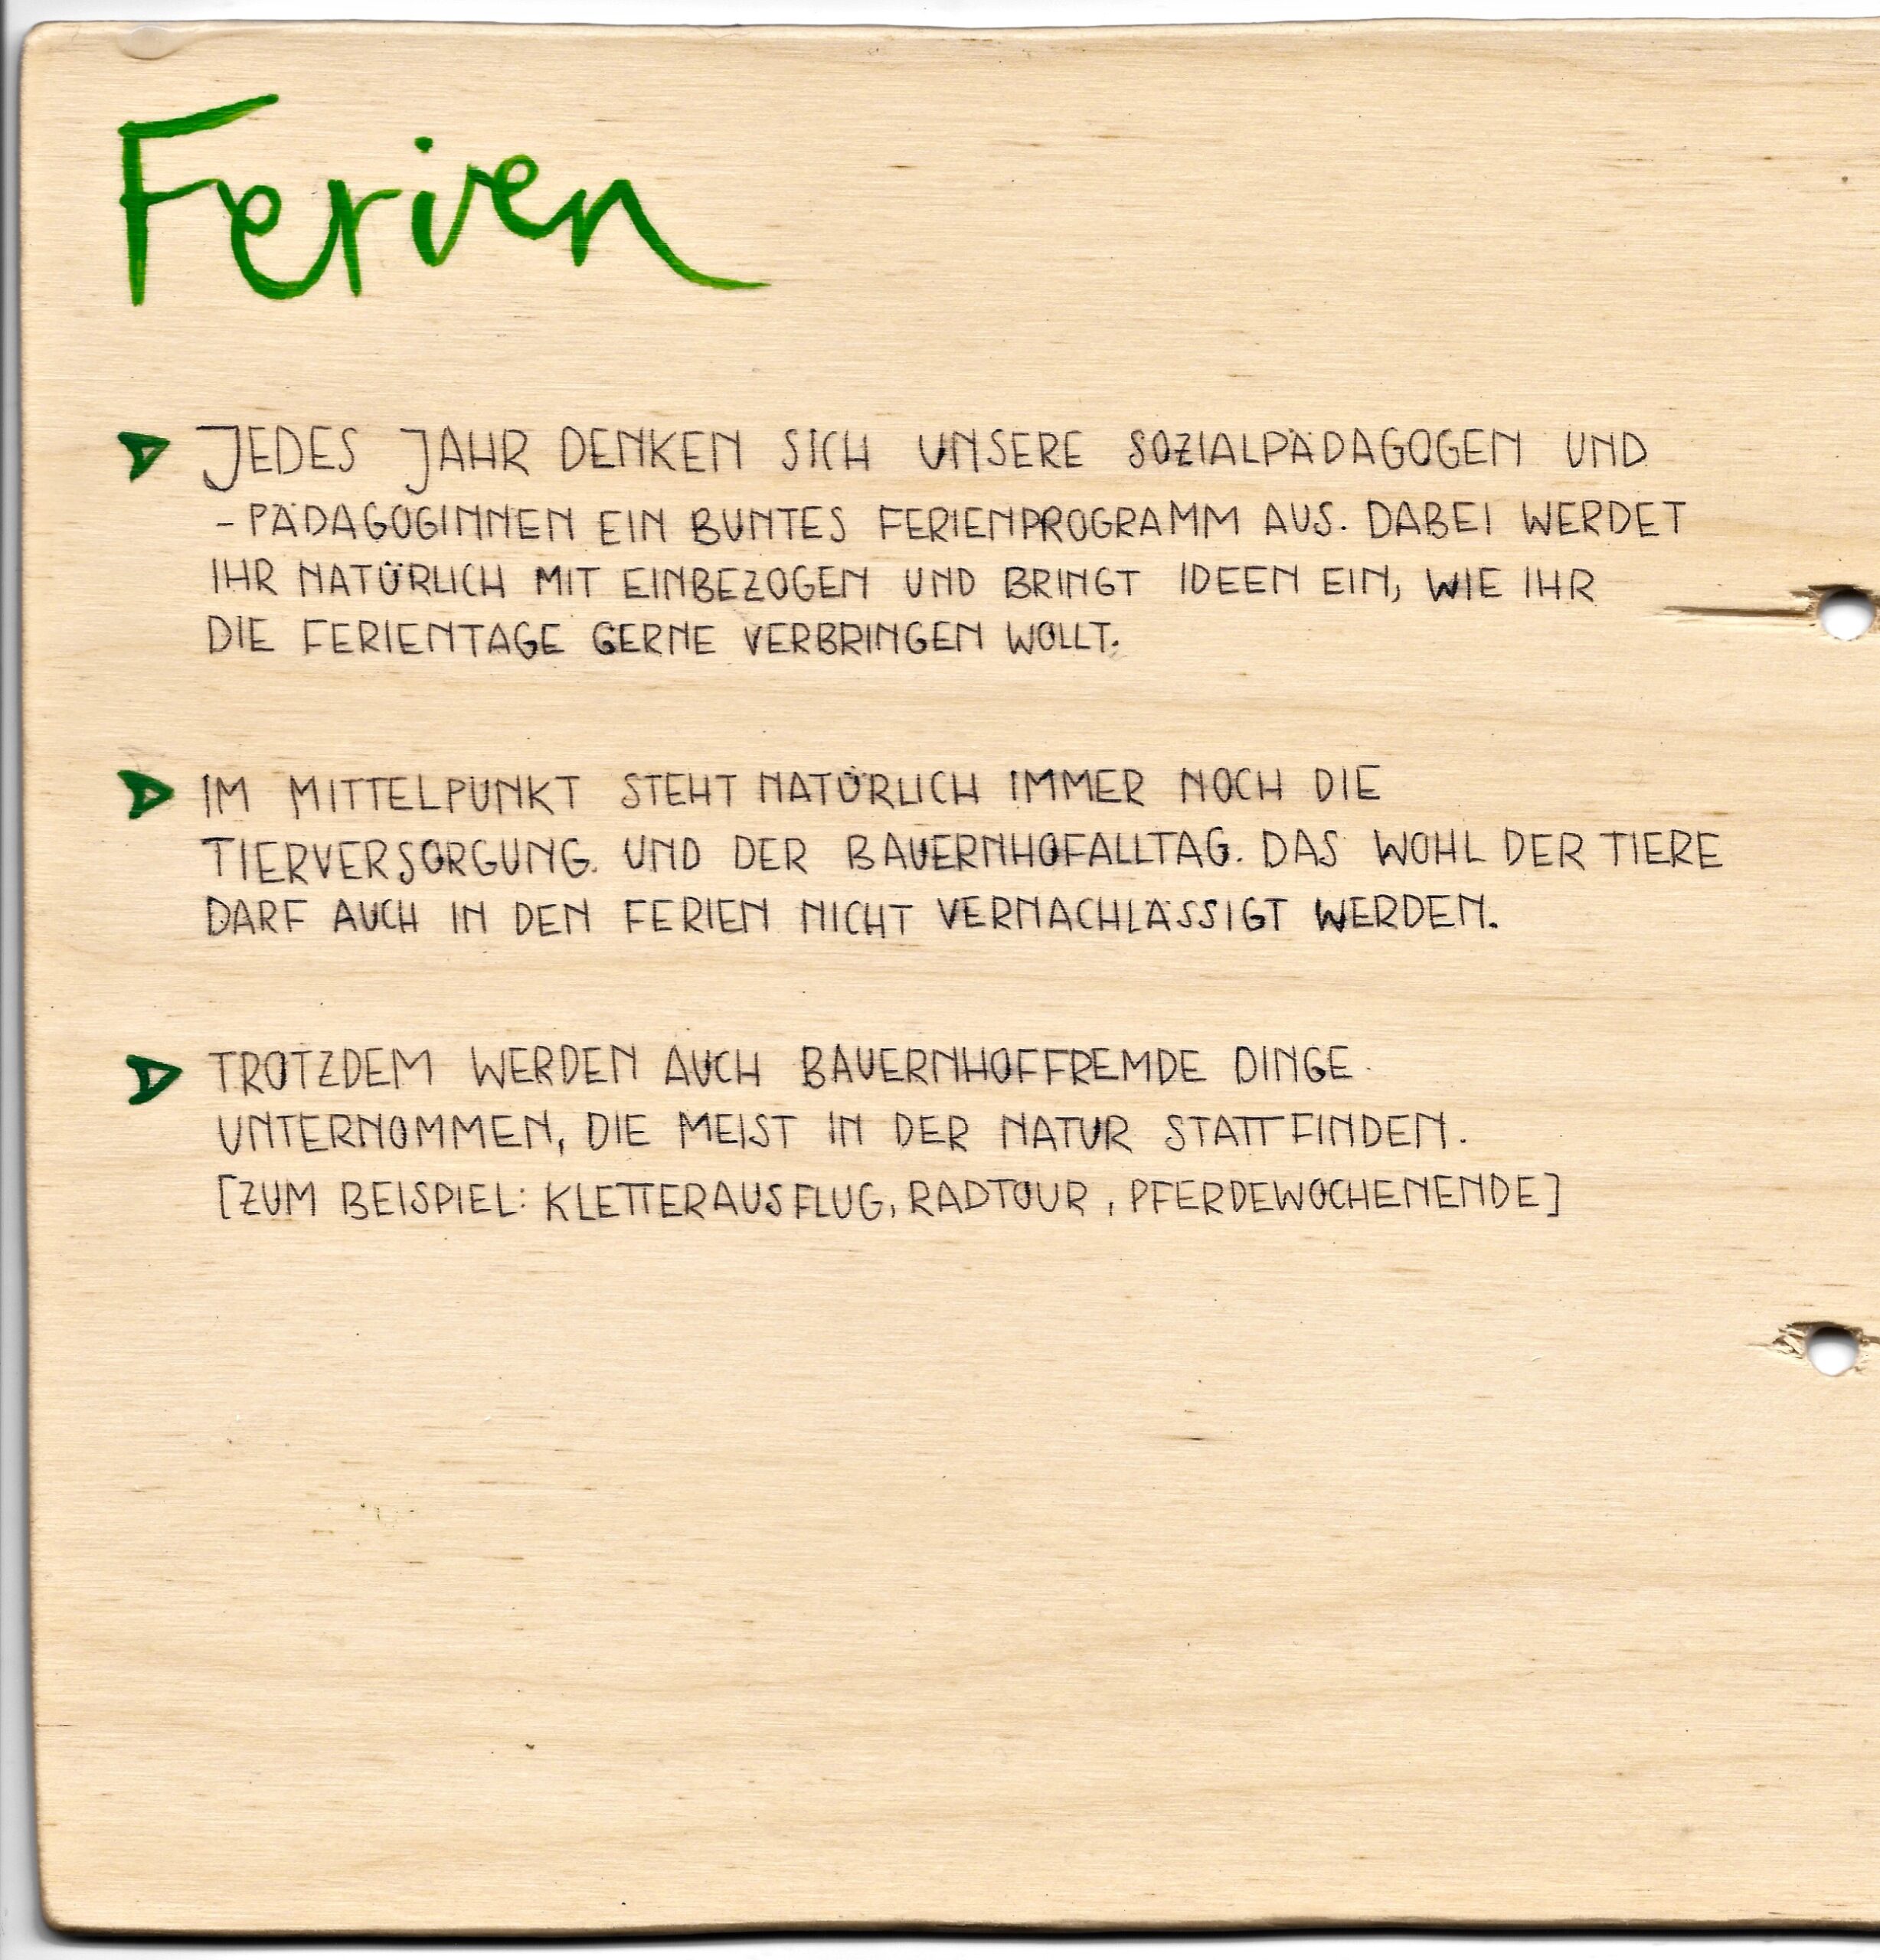 Ferien
JEDES JAHR DENKEN SICH UNSERE SOZIALPÄDAGOGEN UND
- PÄDAGOGINNEN EIN BUNTES FERIENPROGRAMM AUS. DABEI WERDET
IHR NATÜRLICH MIT EINBEZOGEN UND BRINGT IDEEN EIN, WIE IHR
DIE FERIENTAGE GERNE VERBRINGEN WOLLT.
IM MITTELPUNKT STEHT NATÜRLICH IMMER NOCH DIE
TIERVERSORGUNG. UND DER BAUERNHOFALLTAG. DAS WOHL DER TIERE
DARF AUCH IN DEN FERIEN NICHT VERNACHLÄSSIGT WERDEN.
TROTZDEM WERDEN AUCH BAUERNHOFFREMDE DINGE
UNTERNOMMEN, DIE MEIST IN DER NATUR STATTFINDEN.
[ZUM BEISPIEL: KLETTERAUSFLUG, RADTOUR, PFERDEWOCHENENDE]